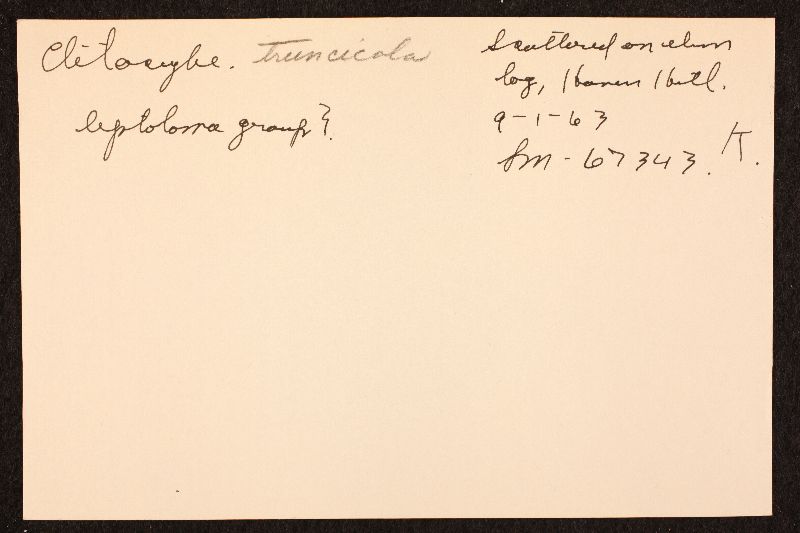 Clitocybe. truncicola
leptoloma group?
Scattered on elm
log, Haven Hill.
9-1-63
Sm-67343. K.